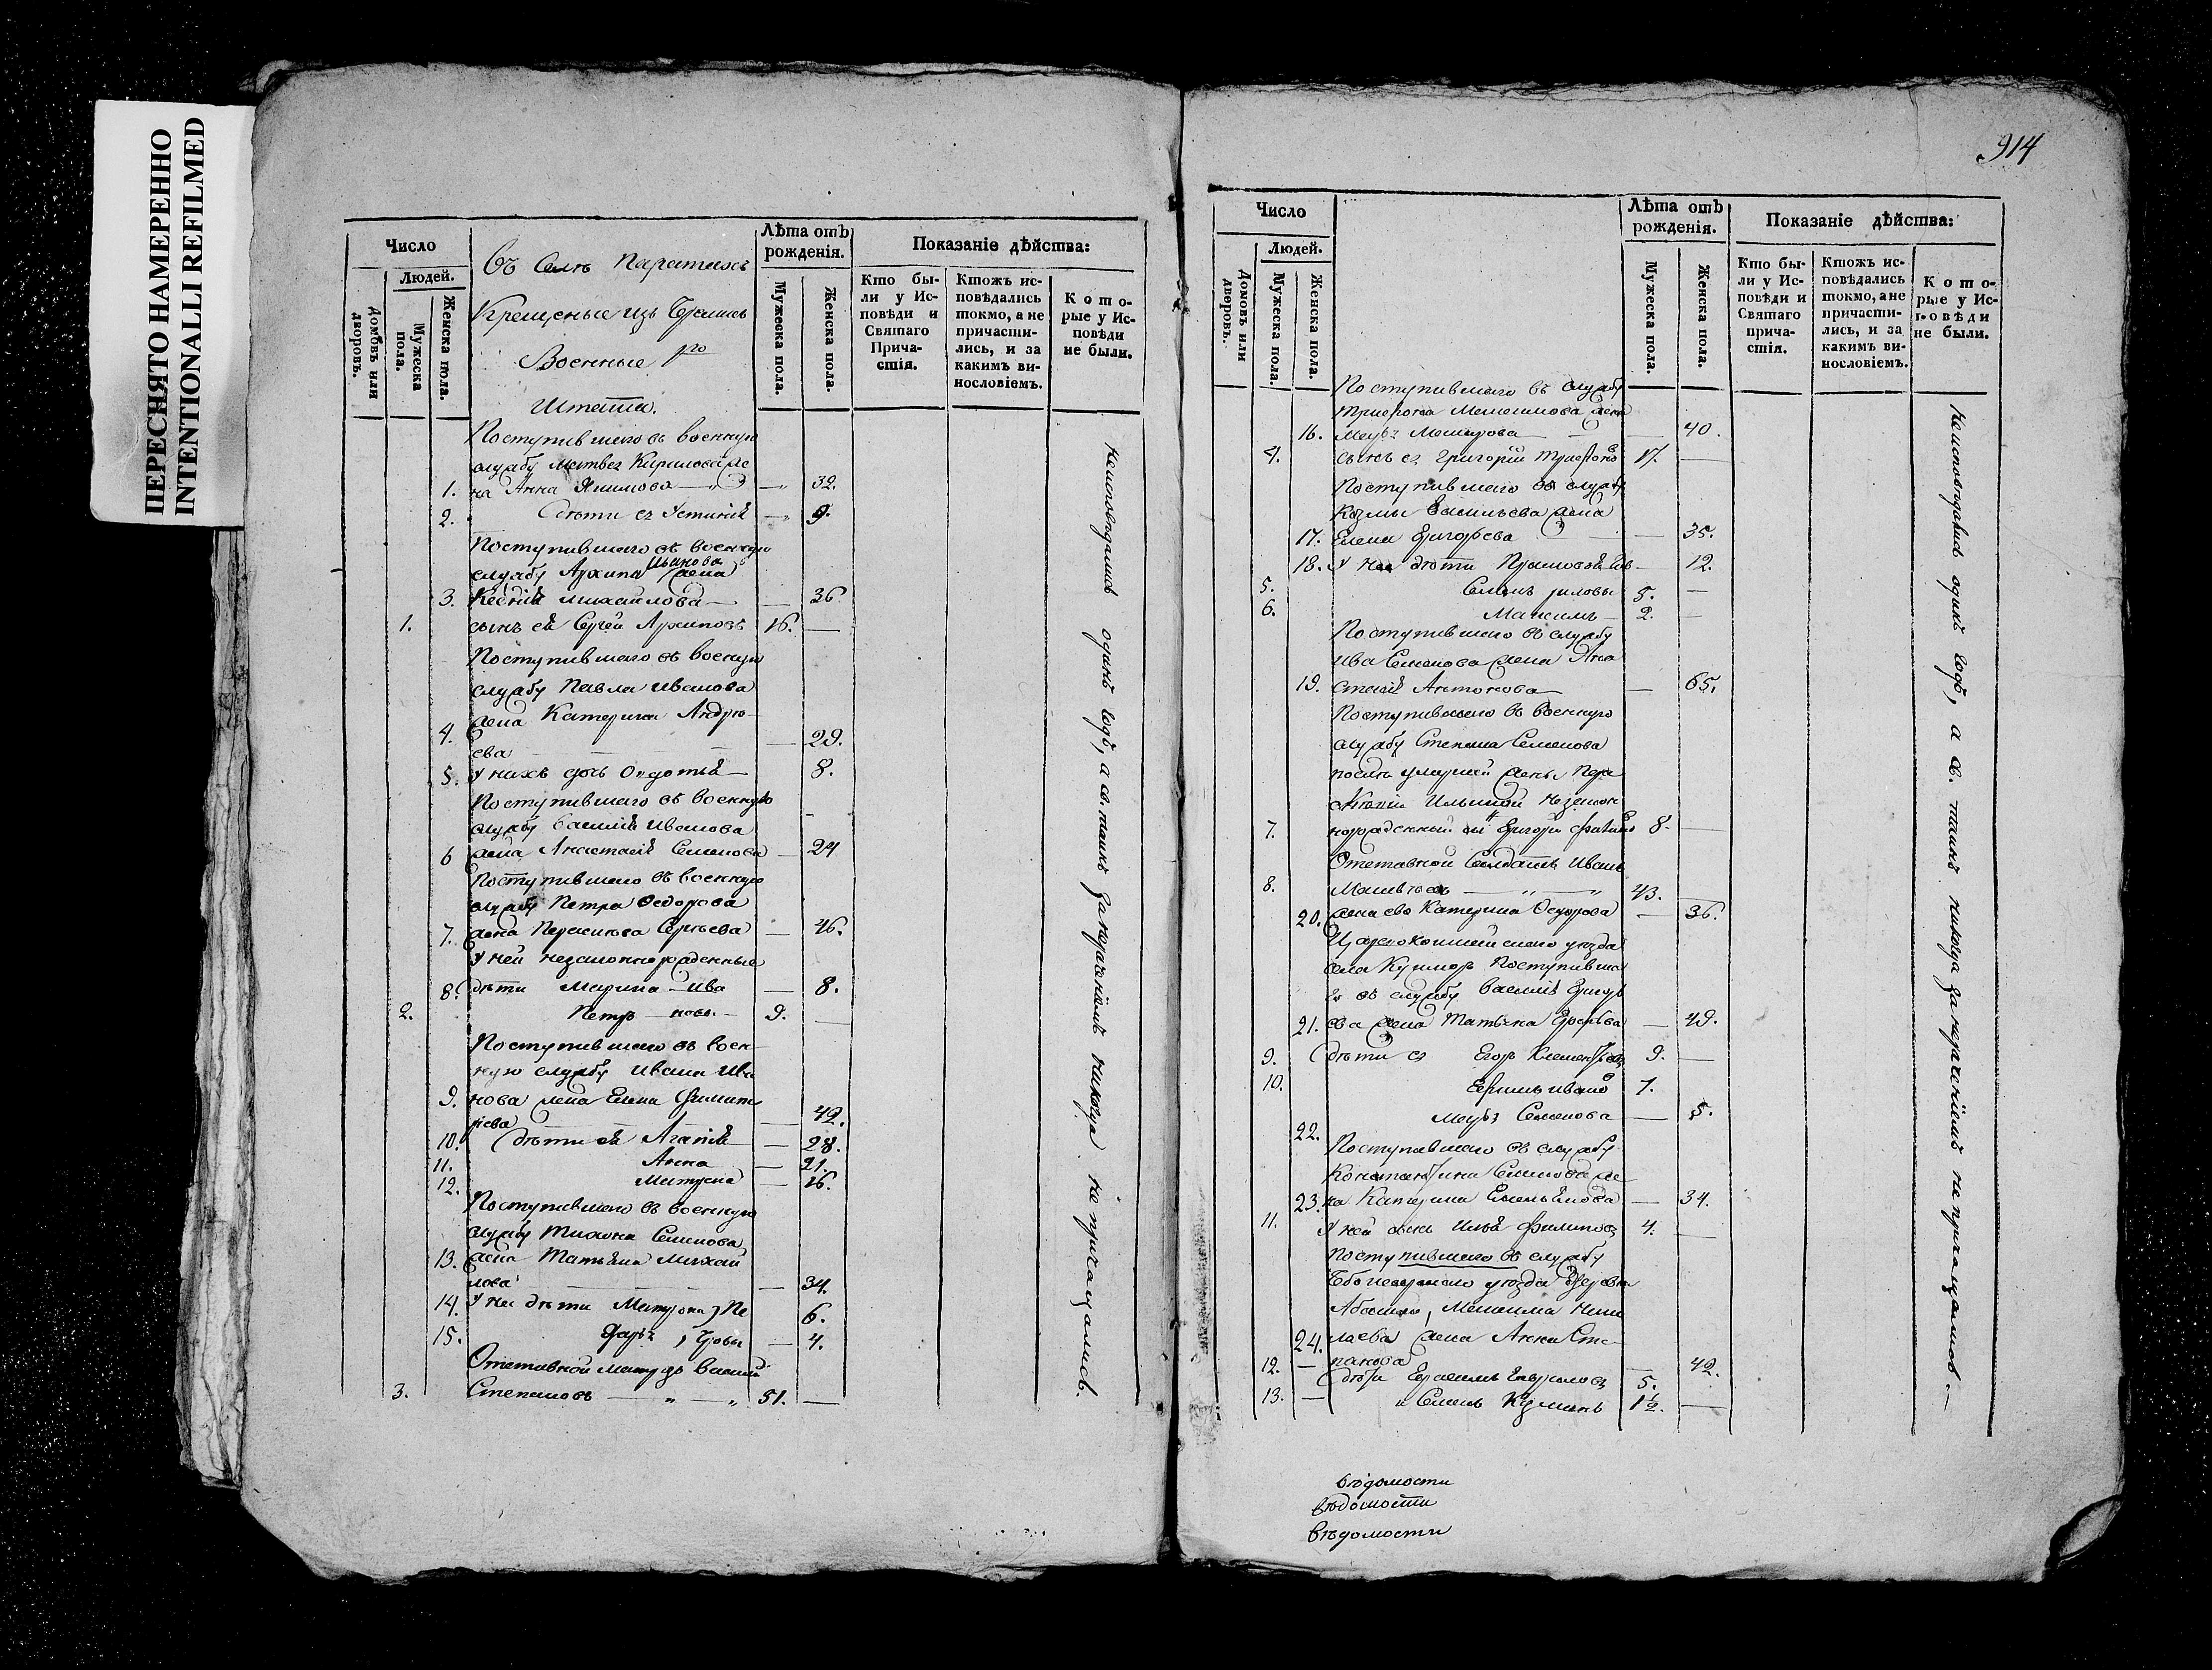 ПЕРЕСНЯТО НАМЕРЕННО
INTENTIONALLI REFILMED
Число
Людей.
Домовъ или дворовъ.
Мужеска пола.
Женска пола.
Въ Селѣ Паратахъ
Крещеные изъ
Военные
Штата.
Лѣта отъ рожденія.
Мужеска пола.
Женска пола.
Показаніе дѣйства:
Кто бы-
ли у Ис-
повѣди и
Святаго
Прича-
стія.
Ктожъ ис-
повѣдались
токмо, а не
причасти-
лись, и за
какимъ ви-
нословіемъ.
Кото-
рые у Ис-
повѣди
не были.
Поступившаго въ военную
службу Матвея Кирилова же
1. на Анна Якимова — 32.
2. дѣти ея Устинія — 9.
Поступившаго въ военную
службу Архипа Иванова жена
3. Ксенія Михайлова — 36
1. сынъ ея Сергей Архиповъ 16. —
Поступившаго въ военную
службу Павла Иванова
4. жена Катерина Андрѣ-
ева — 29.
5. У нихъ дочь Овдотья — 8.
Поступившаго въ военную
службу Василія Иванова
6 жена Анастасія Семенова — 24
Поступившаго въ военную
службу Петра Ѳедорова
7. жена Парасковья Сергѣева — 46.
У ней незаконнорожденные
8. дѣти Марина Ива — 8.
2. Петръ новы — 9. —
Поступившаго въ воен-
ную службу Ивана Ива
9. нова жена Елена Филип
пева — 42.
10. дѣти ея Агапія — 28.
11. Анна — 21.
12. Матрена — 16.
Поступившаго въ военную
службу Тихона Семенова
13. жена Татьяна Михай
лова — 34.
14. У нея дѣти Матрона, Пе 6.
15. Дарья, тровы — 4.
Отставной Василій
3. Степановъ — „ — „ 51. —
Неисповѣдались одинъ годъ, а св. таинъ за нераченіемъ никогда не причащались.
914
Число
Людей.
Домовъ или дворовъ.
Мужеска пола.
Женска пола.
Лѣта отъ
рожденія.
Мужеска пола.
Женска пола.
Показаніе дѣйства:
Кто бы-
ли у Ис-
повѣди и
Святаго
прича-
стія.
Ктожъ ис-
повѣдались
токмо, а не
причасти-
лись, и за
какимъ ви-
нословіемъ.
Кото-
рые у Ис-
повѣди
не были.
Поступившаго въ службу
Трифона Максимова жена
16. — 40.
4. сынъ ея Григорій Трифоновъ 17. —
Поступившаго въ службу
Козмы Васильева жена
17. Елена Григорьева — 35.
18. У нея дѣти — 12.
5. Семенъ риловы 5. —
6. Максимъ — 2. —
Поступившаго въ службу
Ива Семенова жена Ана
19. стасія Антонова — 65.
Поступившаго въ военную
службу Степана Семенова
послѣ умершей жены
Ильиной незакон
7. норожденный Григорій 8. —
Отставной Солдатъ Иванъ
8. Матвеевъ — „ — „ 43. —
20. жена ево Катерина Ѳедорова — 36.
Царевококшайскаго уезда
села Кушмаръ Поступивша
го въ службу Василія Григорь
21. ева жена Татьяна — 49.
9. дѣти ея Егоръ 9. —
10. Ефимъ Ивановъ 7.
22. Семенова — 5.
Поступившаго въ службу
Константина Семенова же
23. на Катерина Емельянова — 34.
11. У ней сынъ Илья Филиповъ 4. —
Поступившаго въ службу
Чебоксарскаго уезда деревни
Максима Нико
24. лаева жена Анна Сте-
панова — 42.
12. — дѣти Герасимъ Гавриловъ 5.
13. — и Семенъ Кузминъ 1½. —
Неисповѣдались одинъ годъ, а св. таинъ никогда за нераченіемъ не причащались. —
вѣдомости
вѣдомости
вѣдомости